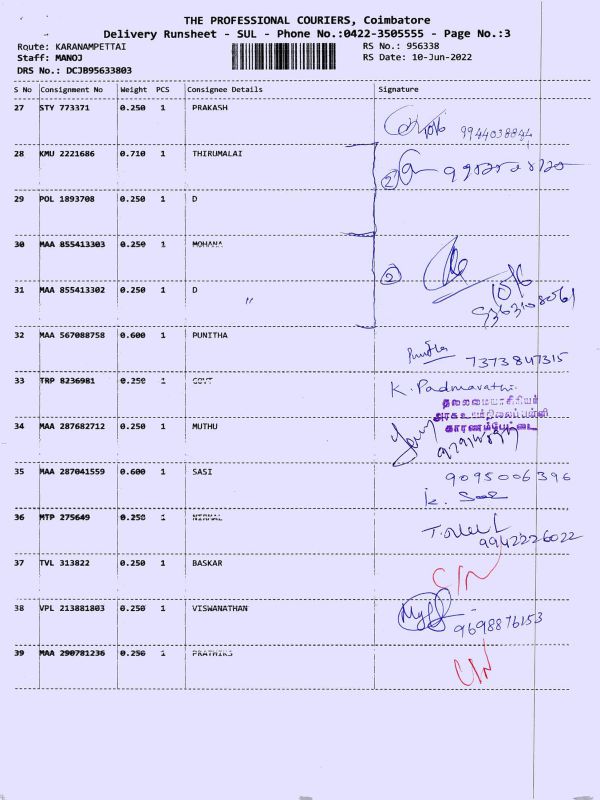 THE PROFESSIONAL COURIERS, Coimbatore
Delivery Runsheet - SUL - Phone No.:0422-3505555 - Page No.:3
Route: KARANAMPETTAI RS No.: 956338
Staff: MANOJ RS Date: 10-Jun-2022
DRS No.: DCJB95633803
S No Consignment No Weight PCS Consignee Details Signature
27 STY 773371 0.250 1 PRAKASH
9944038844
28 KMU 2221686 0.710 1 THIRUMALAI
2
29 POL 1893708 0.250 1 D
30 MAA 855413303 0.250 1 MOHANA
2
31 MAA 855413302 0.250 1 D
"
32 MAA 567088758 0.600 1 PUNITHA
Punitha
7373847315
33 TRP 8236981 0.250 1 GOVT
K. Padmavathi
தலைமையாசிரியர்
அரசு உயர்நிலைப்பள்ளி
காரணம்பேட்டை
34 MAA 287682712 0.250 1 MUTHU
35 MAA 287041559 0.600 1 SASI
9095006396
36 MTP 275649 0.250 1 NIRMAL
9942226022
37 TVL 313822 0.250 1 BASKAR
C/N
38 VPL 213881803 0.250 1 VISWANATHAN
9698876153
39 MAA 290781236 0.250 1 PRATHIKS
C/N